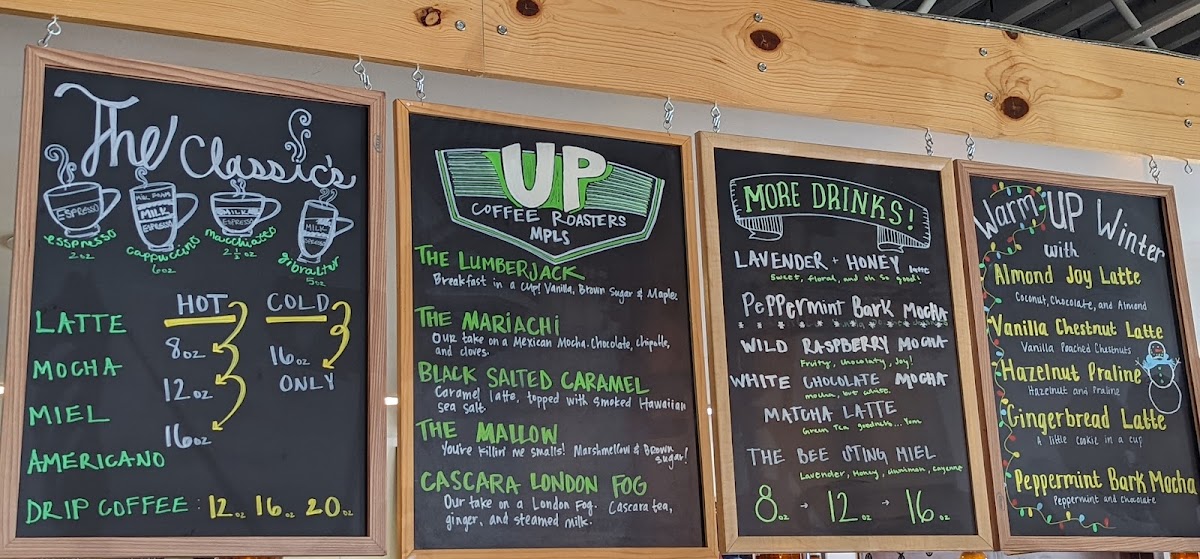 The Classic's
ESPRESSO
MILK FOAM
MILK
ESPRESSO
MILK
ESPRESSO
MILK
ESPRESSO
esspresso
2oz
cappuccino
6oz
macchiato
2 ½ oz
gibraltar
5oz
HOT COLD
LATTE
MOCHA
MIEL
AMERICANO
8oz
12oz
16oz
16oz
ONLY
DRIP COFFEE: 12oz 16oz 20oz
UP
COFFEE ROASTERS
MPLS
THE LUMBERJACK
Breakfast in a cup! Vanilla, Brown Sugar & Maple.
THE MARIACHI
Our take on a Mexican Mocha. Chocolate, chipotle,
and cloves.
BLACK SALTED CARAMEL
Caramel latte, topped with smoked Hawaiian
sea salt.
THE MALLOW
You're killin' me smalls! Marshmellow & Brown
sugar!
CASCARA LONDON FOG
Our take on a London Fog. Cascara tea,
ginger, and steamed milk.
MORE DRINKS!
LAVENDER + HONEY latte
Sweet, floral, and oh so good!
PEPPERMINT BARK MOCHA
WILD RASPBERRY MOCHA
Fruity, chocolaty, Joy!
WHITE CHOCOLATE MOCHA
mocha, but white.
MATCHA LATTE
Green Tea goodness... Yum
THE BEE STING MIEL
Lavender, Honey, Cayenne
8oz → 12oz → 16oz
Warm UP Winter
with
Almond Joy Latte
Coconut, Chocolate, and Almond
Vanilla Chestnut Latte
Vanilla Poached Chestnuts
Hazelnut Praline
Hazelnut and Praline
Gingerbread Latte
A little cookie in a cup
Peppermint Bark Mocha
Peppermint and chocolate